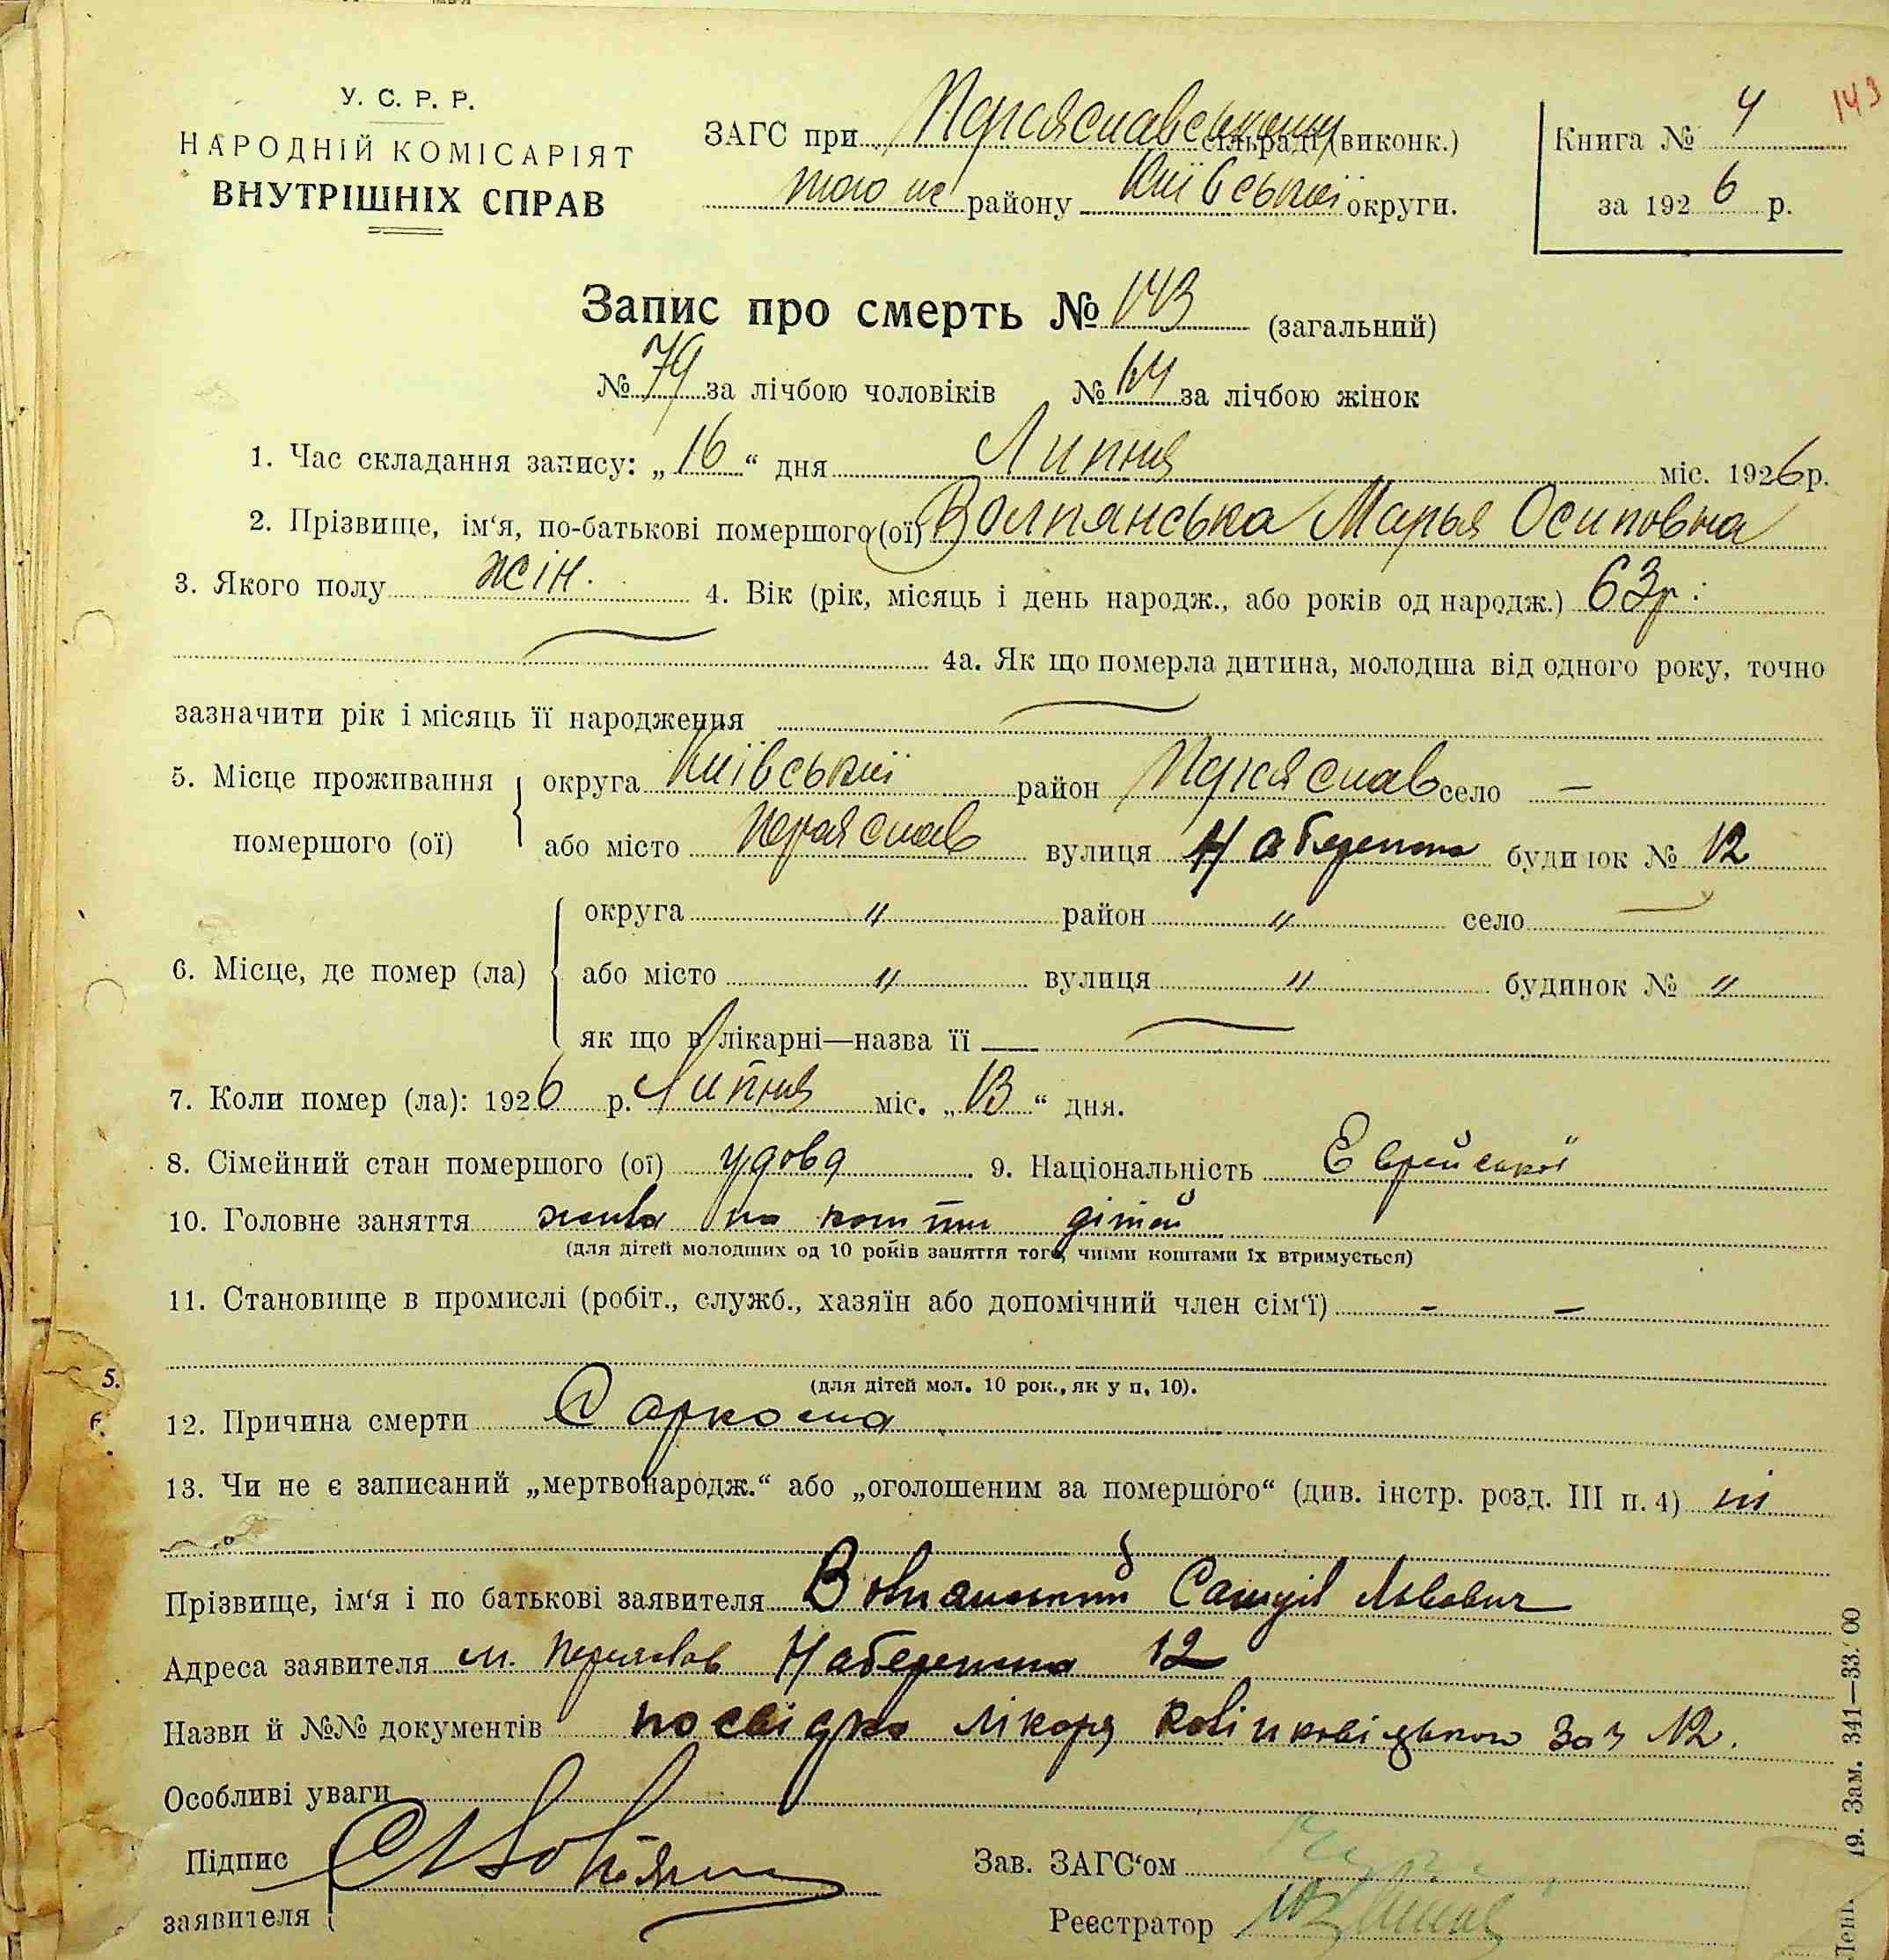 У. С. Р. Р.
НАРОДНІЙ КОМІСАРІЯТ
ВНУТРІШНІХ СПРАВ
ЗАГС при Переяславському сільраді (виконк.)
того же району Київської округи.
Книга № 4
за 1926 р.
143
Запис про смерть № 143 (загальний)
№ 79 за лічбою чоловіків № 64 за лічбою жінок
1. Час складання запису: „16“ дня Липня міс. 1926 р.
2. Прізвище, ім‘я, по-батькові помершого (ої) Волпянська Марья Осиповна
3. Якого полу жін. 4. Вік (рік, місяць і день народж., або років од народж.) 63 р.
4а. Як що померла дитина, молодша від одного року, точно
зазначити рік і місяць її народження
5. Місце проживання помершого (ої) округа Київської район Переяслав село —
або місто Переяслав вулиця Набережна будинок № 12
6. Місце, де помер (ла) округа " район " село
або місто " вулиця " будинок № "
як що в лікарні—назва її
7. Коли помер (ла): 1926 р. Липня міс. „13“ дня.
8. Сімейний стан помершого (ої) удова 9. Національність Єврейської
10. Головне заняття жила на кошти дітей
(для дітей молодших од 10 років заняття того, чиїми коштами їх втримується)
11. Становище в промислі (робіт., служб., хазяїн або допомічний член сім‘ї) - —
(для дітей мол. 10 рок., як у п. 10).
5.
6.
12. Причина смерти Саркома
13. Чи не є записаний „мертвонародж.“ або „оголошеним за помершого“ (див. інстр. розд. III п. 4) ні
Прізвище, ім‘я і по батькові заявителя Волпянський Самуїл Львович
Адреса заявителя м. Переяслав Набережна 12
Назви й №№ документів посвідка лікаря за № 12.
Особливі уваги
Підпис заявителя
Зав. ЗАГС‘ом
Реєстратор
19. Зам. 341—33.' 00